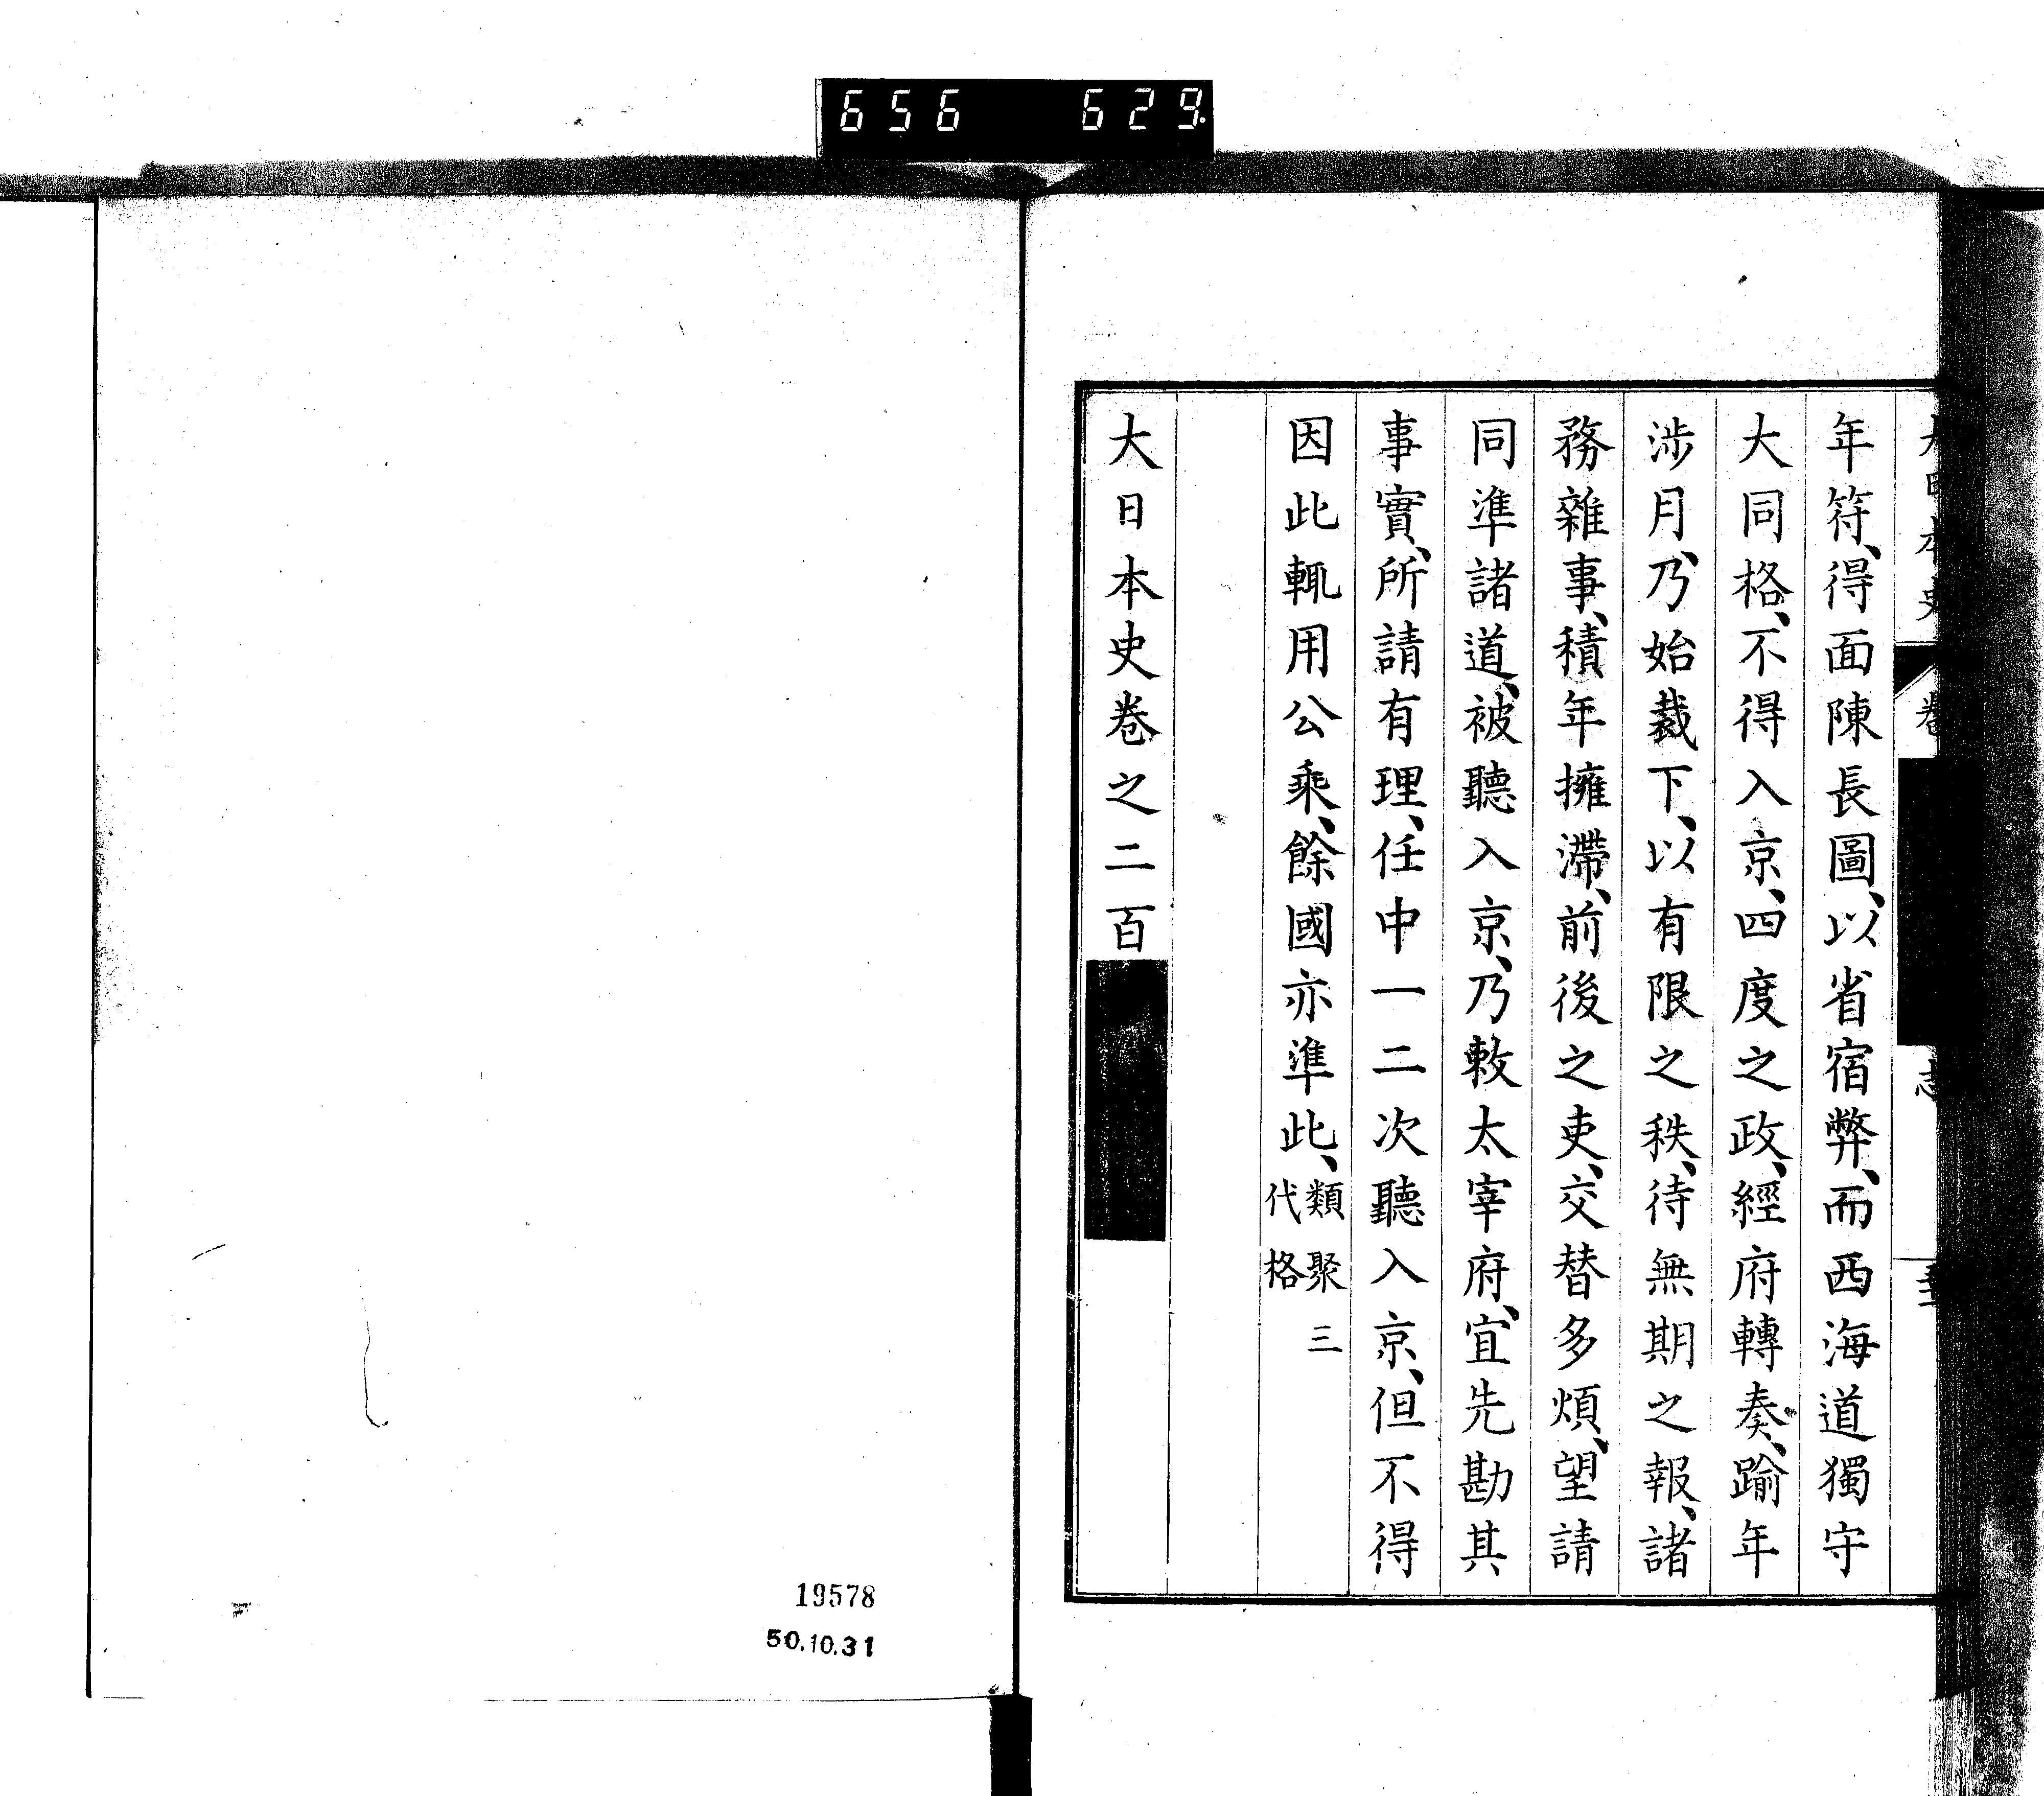 656 629
年符、得面陳長圖、以省宿弊、而西海道獨守
大同格、不得入京、四度之政、經府轉奏、踰年
涉月、乃始裁下、以有限之秩、待無期之報、諸
務雜事、積年擁滯、前後之吏、交替多煩、望請
同準諸道、被聽入京、乃敕太宰府、宜先勘其
事實、所請有理、任中一二次聽入京、但不得
因此輒用公乘、餘國亦準此、類聚三
代格
大日本史卷之二百
19578
50.10.31